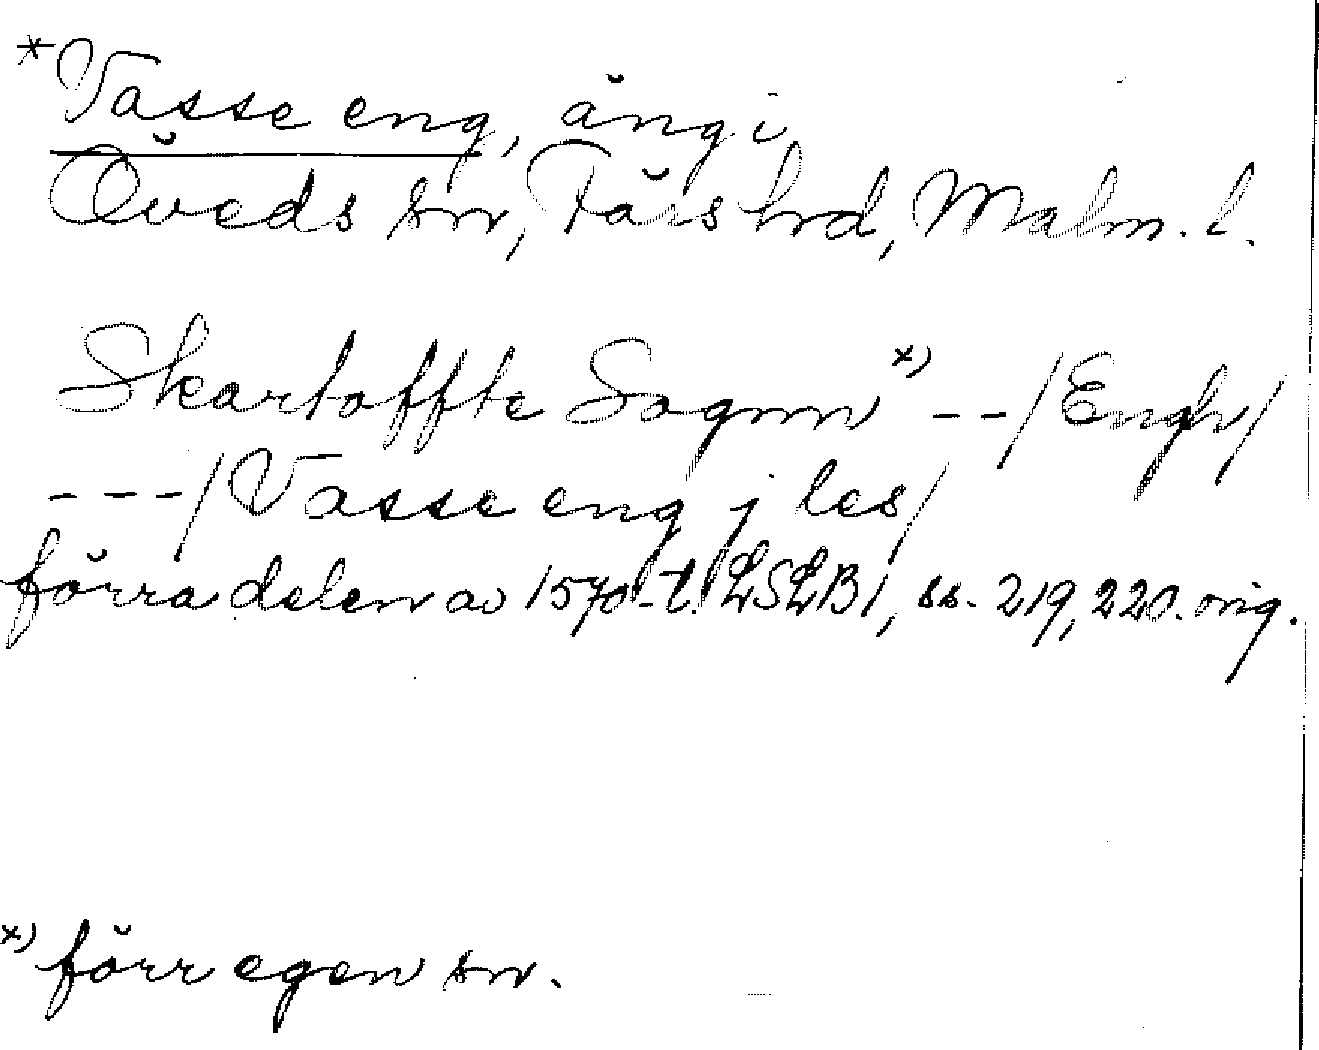 *Vasse eng, äng i
Öveds sn, Färs hrd, Malm. l.
Skartoffte Sognn x) -- / Engh /
--- / Vasse eng j les /
förra delen av 1570-t. LSLB1, ss. 219, 220. orig.
x) förr egen sn.